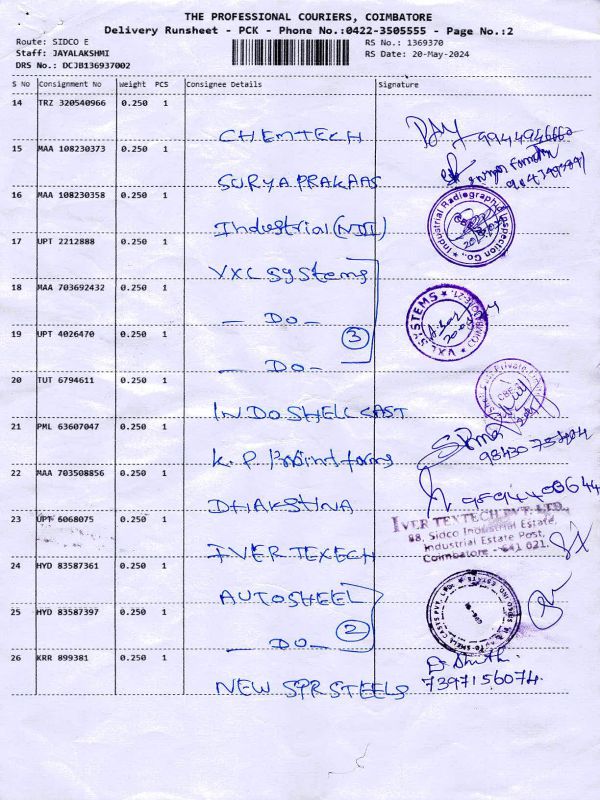 THE PROFESSIONAL COURIERS, COIMBATORE
Delivery Runsheet - PCK - Phone No.:0422-3505555 - Page No.:2
Route: SIDCO E
RS No.: 1369370
Staff: JAYALAKSHMI
RS Date: 20-May-2024
DRS No.: DCJB136937002
S No Consignment No Weight PCS Consignee Details Signature
14 TRZ 320540966 0.250 1
CHEMTECH 9944946660
15 MAA 108230373 0.250 1
SURYA PRAKAAS
16 MAA 108230358 0.250 1
Industrial (NDI) Industrial Radiographic Inspection Co.,
17 UPT 2212888 0.250 1
VXL Systems
18 MAA 703692432 0.250 1
- DO - VXL SYSTEMS
3
19 UPT 4026470 0.250 1
- DO -
20 TUT 6794611 0.250 1
INDOSHELL CAST
21 PML 63607047 0.250 1
K. P.
22 MAA 703508856 0.250 1
DHAKSHNA
23 UPT 6068075 0.250 1
IVER TEXTECH PVT. LTD.,
88, Sidco Industrial Estate,
Industrial Estate Post,
Coimbatore - 641 021.
IVER TEXECH
24 HYD 83587361 0.250 1
AUTOSHEEL
25 HYD 83587397 0.250 1
- DO -
2
26 KRR 899381 0.250 1
NEW SPR STEELS 7397156074